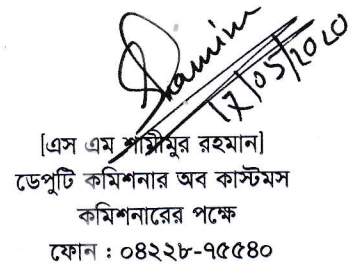 Shamim
17/05/2020
[এস এম শামীমুর রহমান]
ডেপুটি কমিশনার অব কাস্টমস
কমিশনারের পক্ষে
ফোন : ০৪২২৮-৭৫৫৪০